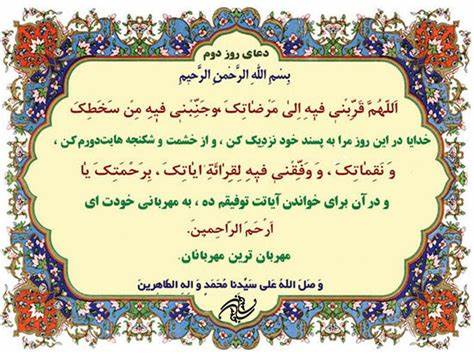 دعای روز دوم
بِسْمِ اللَّهِ الرَّحْمنِ الرَّحِيمِ
اَللّهُمَّ قَرِّبْني فيهِ اِلىٰ مَرْضاتِكَ ،وجَنِّبْني فيهِ مِنْ سَخَطِكَ
خدایا در این روز مرا به پسند خود نزدیک کن ، و از خشمت و شکنجه هایت‌دورم‌کن ،
وَ نَقِماتِكَ ، وَ وَفِّقْني فيهِ لِقِرائَةِ اياتِكَ ، بِرَحْمَتِكَ يا
و درآن برای خواندن آیاتت توفیقم ده ، به مهربانی خودت ای
اَرْحَمَ الرّاحِمينَ.
مهربان ترین مهربانان.
وَ صَلَ اللهُ عَلى سَيِّدنا مُحَمَدٍ وَ الِهِ الطاهِرينَ